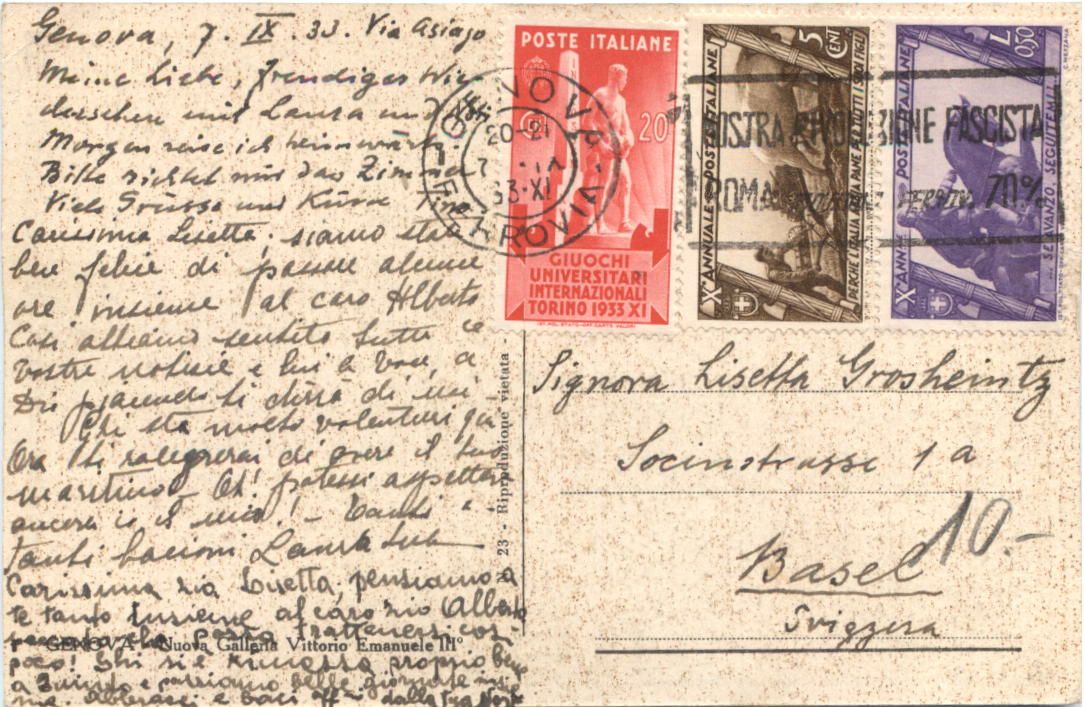 Genova, 7. IX. 33. Via Asiago
Meine Liebe, freudiges Wie-
dersehen mit Laura und
Morgen reise ich heimwärts.
Bitte richtet mir das Zimmer
Viele Grüsse und Küsse
Carissima Lisetta, siamo
felice di passare alcune
ore insieme al caro Alberto
Così abbiamo sentito tutte le
vostre notizie e lui a voce, a
Dio piacendo ti dirrà di noi
Chi sta molto volentieri qui
Ora ti ralegrerai di avere il tuo
maritino - Oh! potessi aspettare
ancora io il mio! - Tanti e
tanti bacioni Laura
Carissima zia Lisetta, pensiamo a
te tanto insieme al caro zio Alberto
trattenersi così
poco! proprio bene
a e passiamo belle giornate insie
me. e baci dalla tua
GENOVA - Nuova Galleria Vittorio Emanuele IIIº
23 - Riproduzione vietata -
POSTE ITALIANE
20
GIUOCHI
UNIVERSITARI
INTERNAZIONALI
TORINO 1933 XI
IST. POL. STATO-OFF. CARTE VALORI
5 CENT
Xº ANNUALE POSTE ITALIANE
PERCHE L'ITALIA DIA PANE PER TUTTI I SUOI FIGLI
L 0,50
Xº ANNALE POSTE ITALIANE
... SE AVANZO, SEGUITEMI
GENOVA
FERROVIA
20-21
33-XI
MOSTRA RIVOLUZIONE FASCISTA
ROMA 70%
Signora Lisetta Grosheintz
Socinstrasse 1a
10.-
Basel
Svizzera